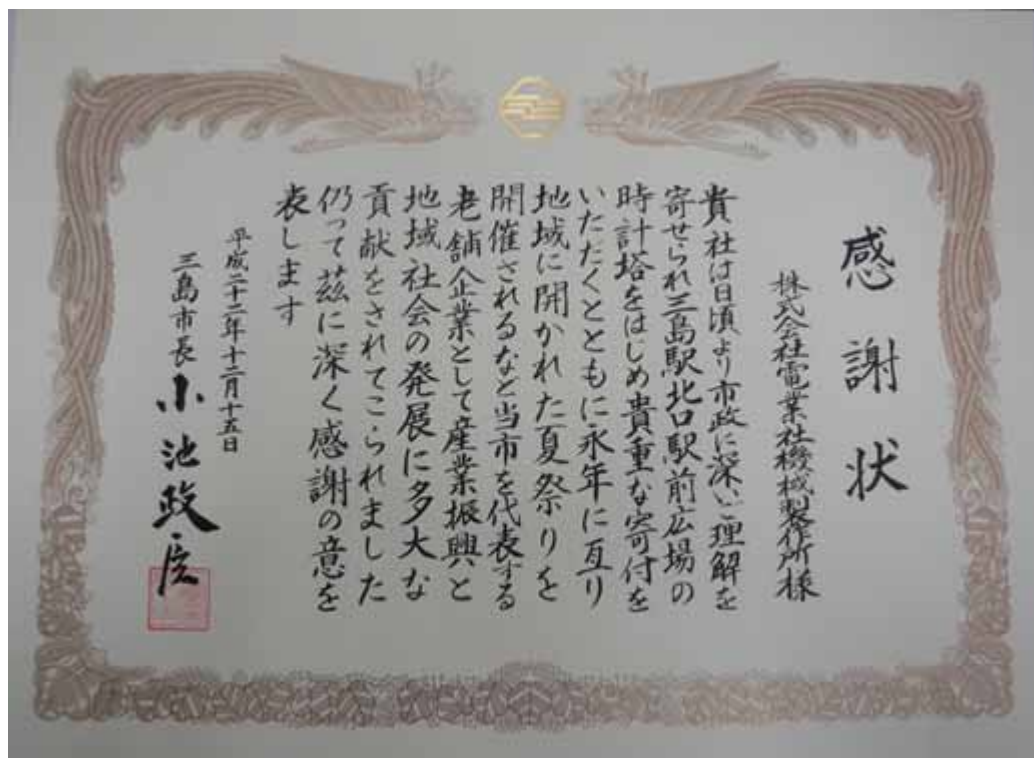 感謝状
株式会社電業社機械製作所様
貴社は日頃より市政に深いご理解を
寄せられ三島駅北口駅前広場の
時計塔をはじめ貴重な寄付を
いただくとともに永年に亘り
地域に開かれた夏祭りを
開催されるなど当市を代表する
老舗企業として産業振興と
地域社会の発展に多大な
貢献をされてこられました
仍って茲に深く感謝の意を
表します
平成二十二年十二月十五日
三島市長 小池政臣